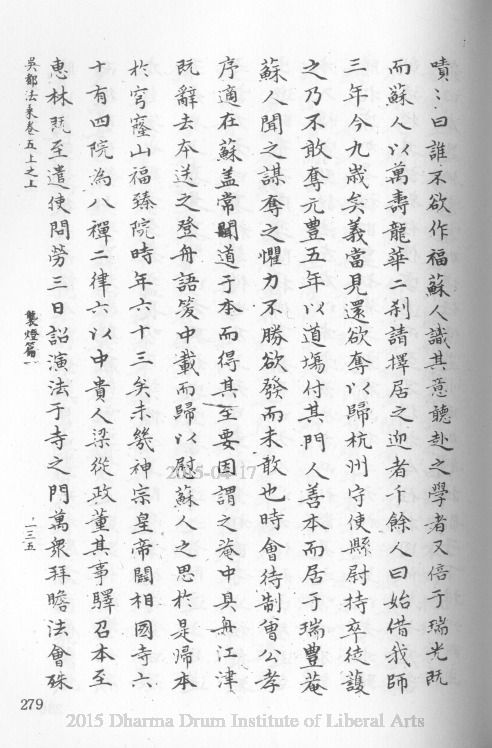 嘖〻曰誰不欲作福蘇人識其意聽赴之學者又倍于瑞光既
而蘇人以萬壽龍華二刹請擇居之迎者千餘人曰始借我師
三年今九歲矣義當見還欲奪以歸杭州守使縣尉持卒徒護
之乃不敢奪元豐五年以道塲付其門人善本而居于瑞豐菴
蘇人聞之謀奪之懼力不勝欲發而未敢也時會待制曾公孝
序適在蘇盖常關道于本而得其至要因謂之菴中具舟江津
既辭去本送之登舟語笑中載而歸以慰蘇人之思於是歸本
於穹窿山福臻院時年六十三矣未幾神宗皇帝闢相國寺六
十有四院為八禪二律六以中貴人梁從政董其事驛召本至
惠林既至遣使問勞三日詔演法于寺之門萬衆拜瞻法會殊
吳都法乘卷五上之上
襲燈篇一
一三五
279
2015-04-17
2015 Dharma Drum Institute of Liberal Arts